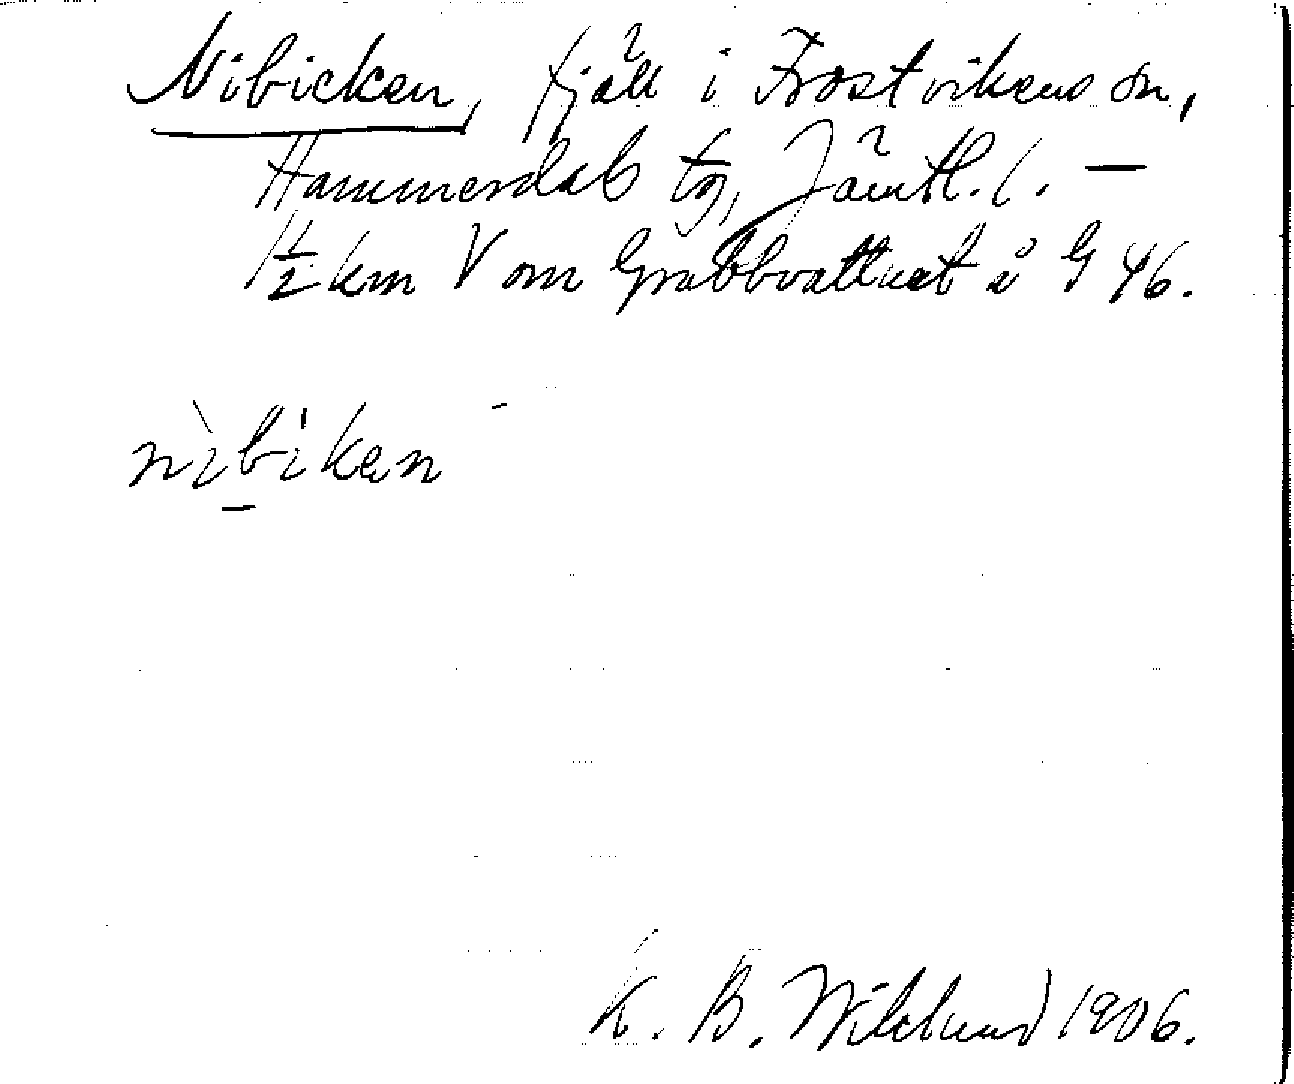 Nibicken, fjäll i Frostvikens sn,
Hammerdals tg, Jämtl. l. —
1½ km V om Grabbvattnet å G 46.
nìbíken
K. B. Wiklund 1906.